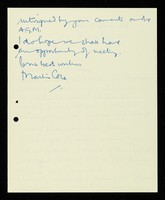 intrigued by your comments on the
A.G.M.
I do hope we shall have
an opportunity of meeting.
Some best wishes
Martin Cole